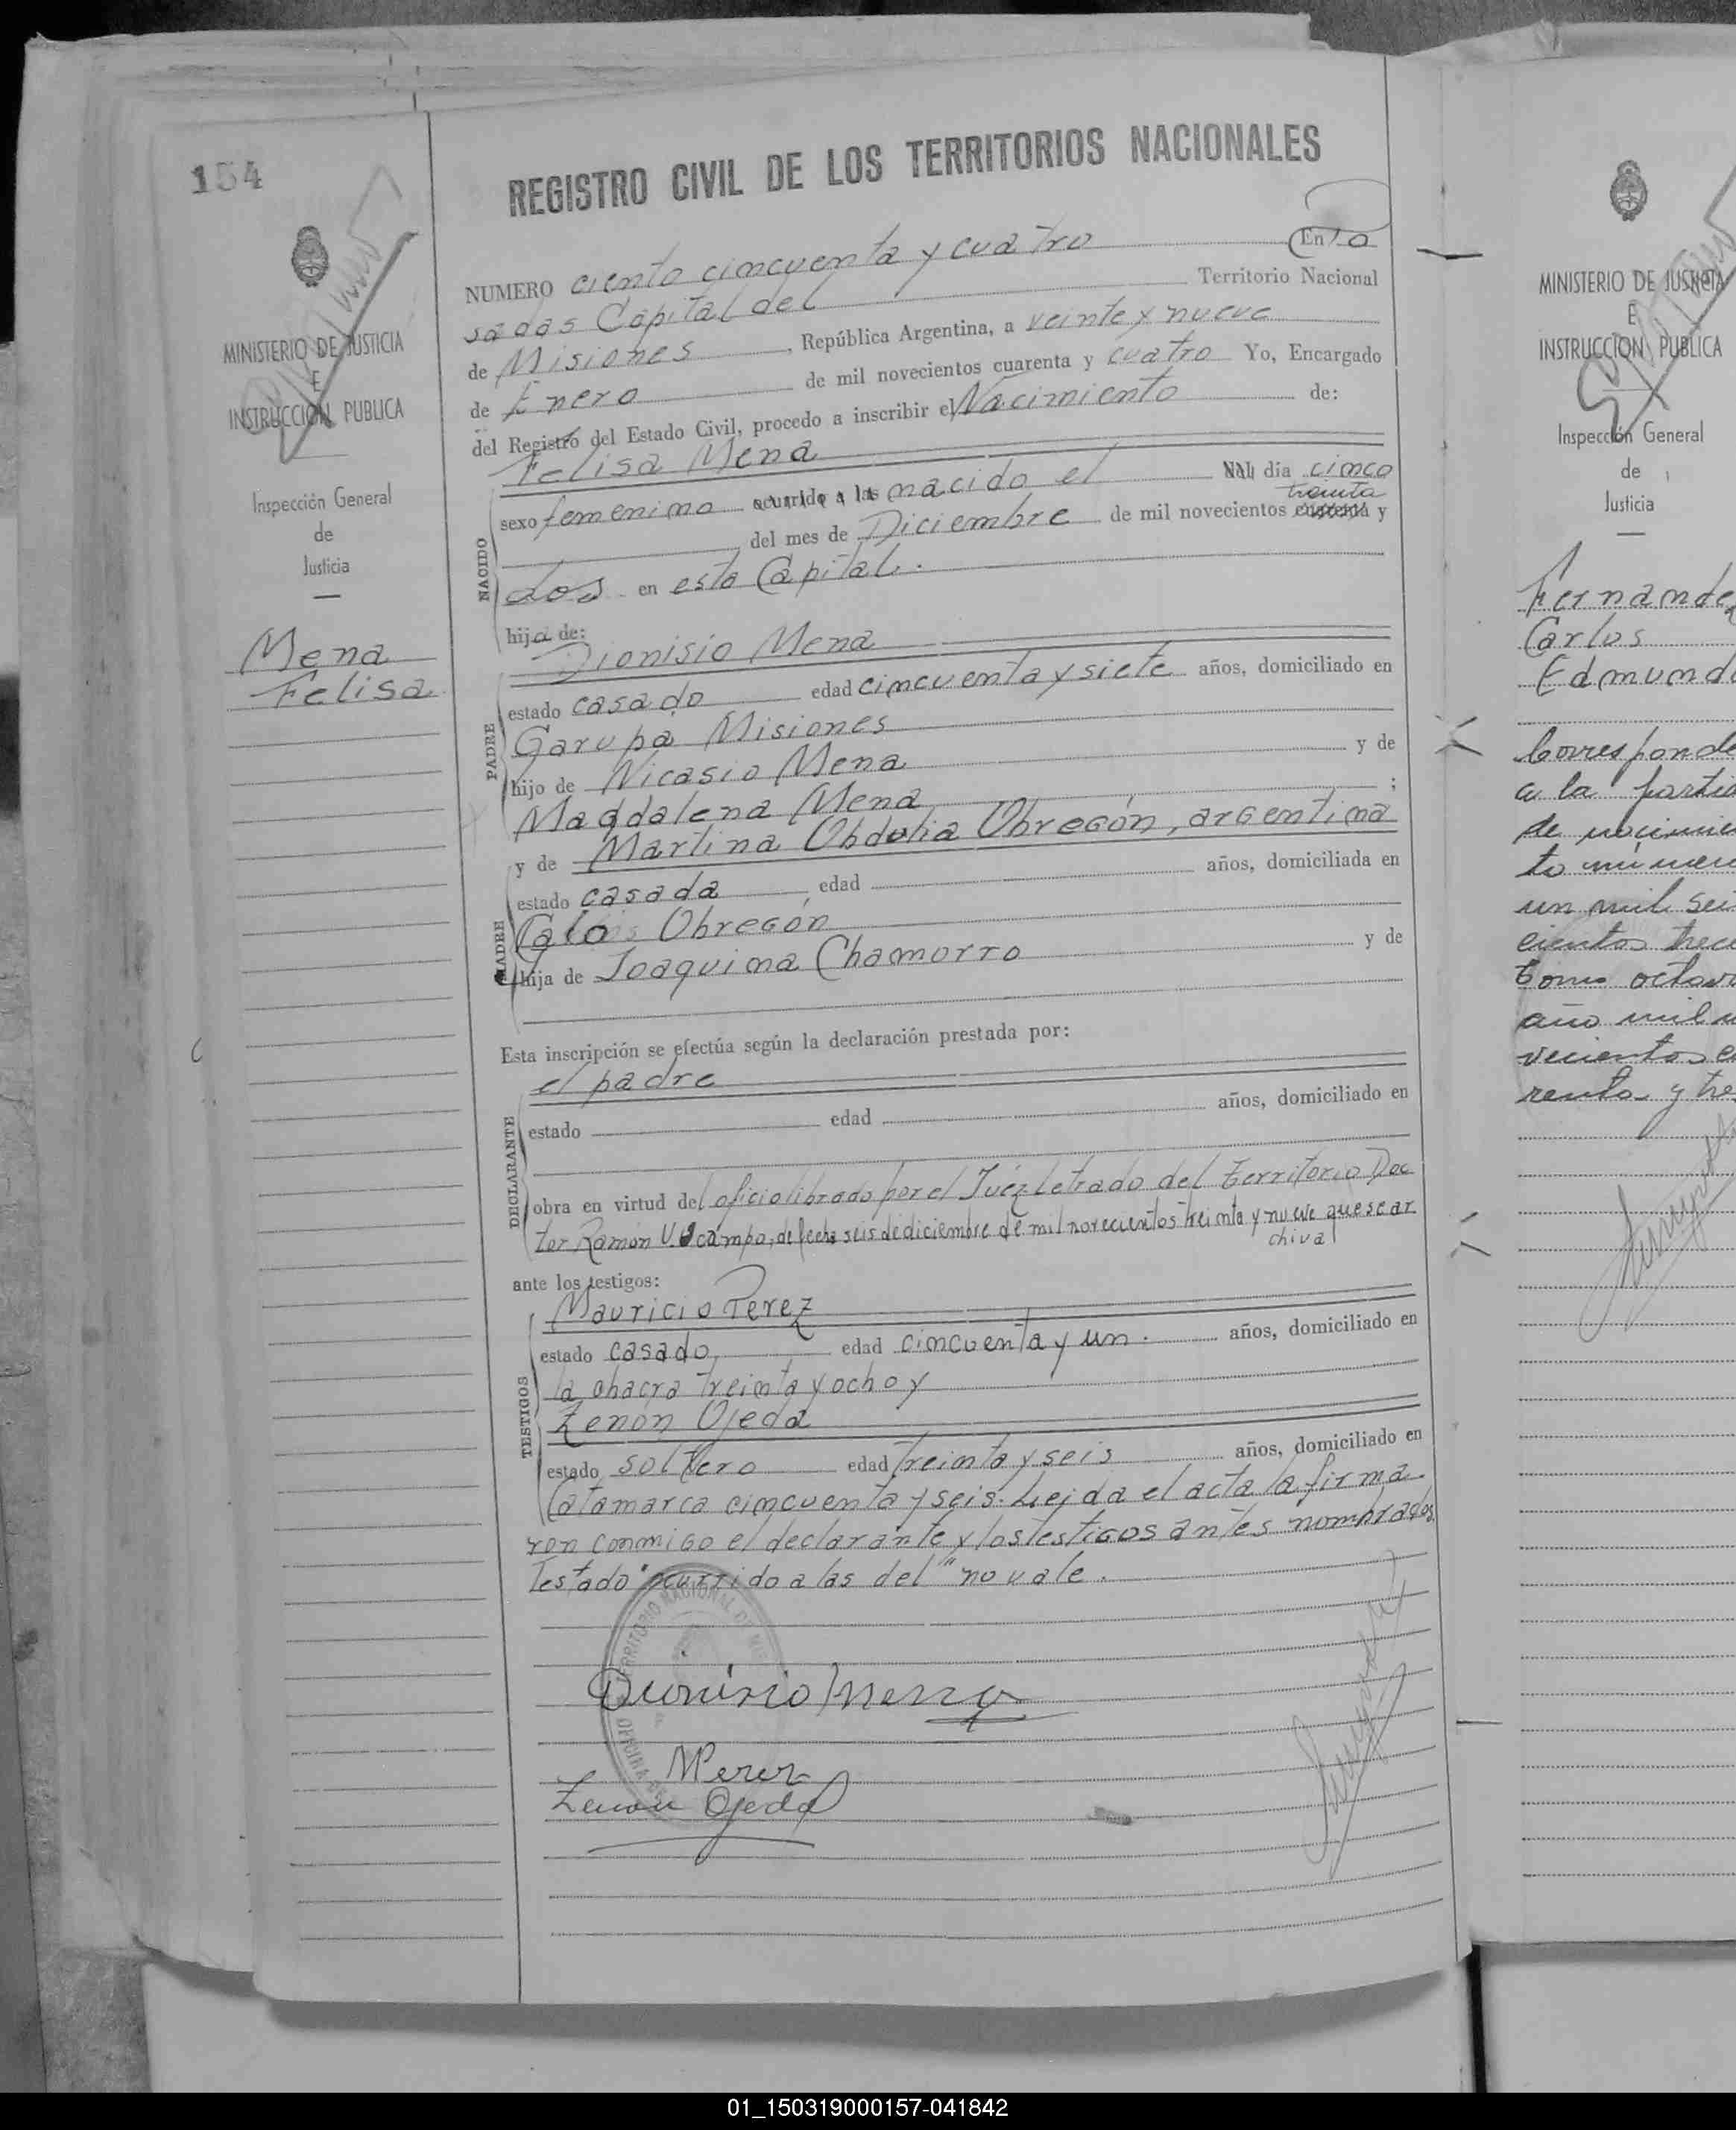 154
MINISTERIO DE JUSTICIA
E
INSTRUCCION PUBLICA
Inspección General
de
Justicia
Mena
Felisa
REGISTRO CIVIL DE LOS TERRITORIOS NACIONALES
NUMERO ciento cincuenta y cuatro En
sadas Capital del Territorio Nacional
de Misiones, República Argentina, a veinte y nueve
de Enero de mil novecientos cuarenta y cuatro Yo, Encargado
del Registro del Estado Civil, procedo a inscribir el Nacimiento de:
Felisa Mena
NACIDO
sexo femenino ocurrido a las nacido el día cinco
treinta
del mes de Diciembre de mil novecientos cuarenta y
dos en esta Capital.
hija de:
Dionisio Mena
PADRE
estado casado edad cincuenta y siete años, domiciliado en
Garupá Misiones
hijo de Nicasio Mena y de
Magdalena Mena ;
y de Martina Obdulia Obregón, argentina
MADRE
estado casada edad años, domiciliada en
Obregón
hija de Joaquina Chamorro y de
Esta inscripción se efectúa según la declaración prestada por:
el padre
DECLARANTE
estado edad años, domiciliado en
obra en virtud del oficio librado por el Juez letrado del territorio Doc
tor Ramon V. Ocampo, de fecha seis de diciembre de mil novecientos treinta y nueve que se ar
chiva
ante los testigos:
Mauricio Perez
TESTIGOS
estado casado edad cincuenta y un. años, domiciliado en
la chacra treinta y ocho y
Zenón Ojeda
estado soltero edad treinta y seis años, domiciliado en
Catamarca cincuenta y seis. Leida el acta la firma
ron conmigo el declarante y los testigos antes nombrados
Testado "ocurrido a las del" no vale.
TERRITORIO NACIONAL DE
OFICINA
Dionisio Mena
MPerez
Zenon Ojeda
MINISTERIO DE JUSTICIA
E
INSTRUCCION PUBLICA
Inspección General
de
Justicia
Fernande
Carlos
Edmund
Corresponde
a la partid
de nacimie
to núme
un mil sei
cientos trece
tomo octav
año mil n
vecientos c
renta y tre
01_150319000157-041842